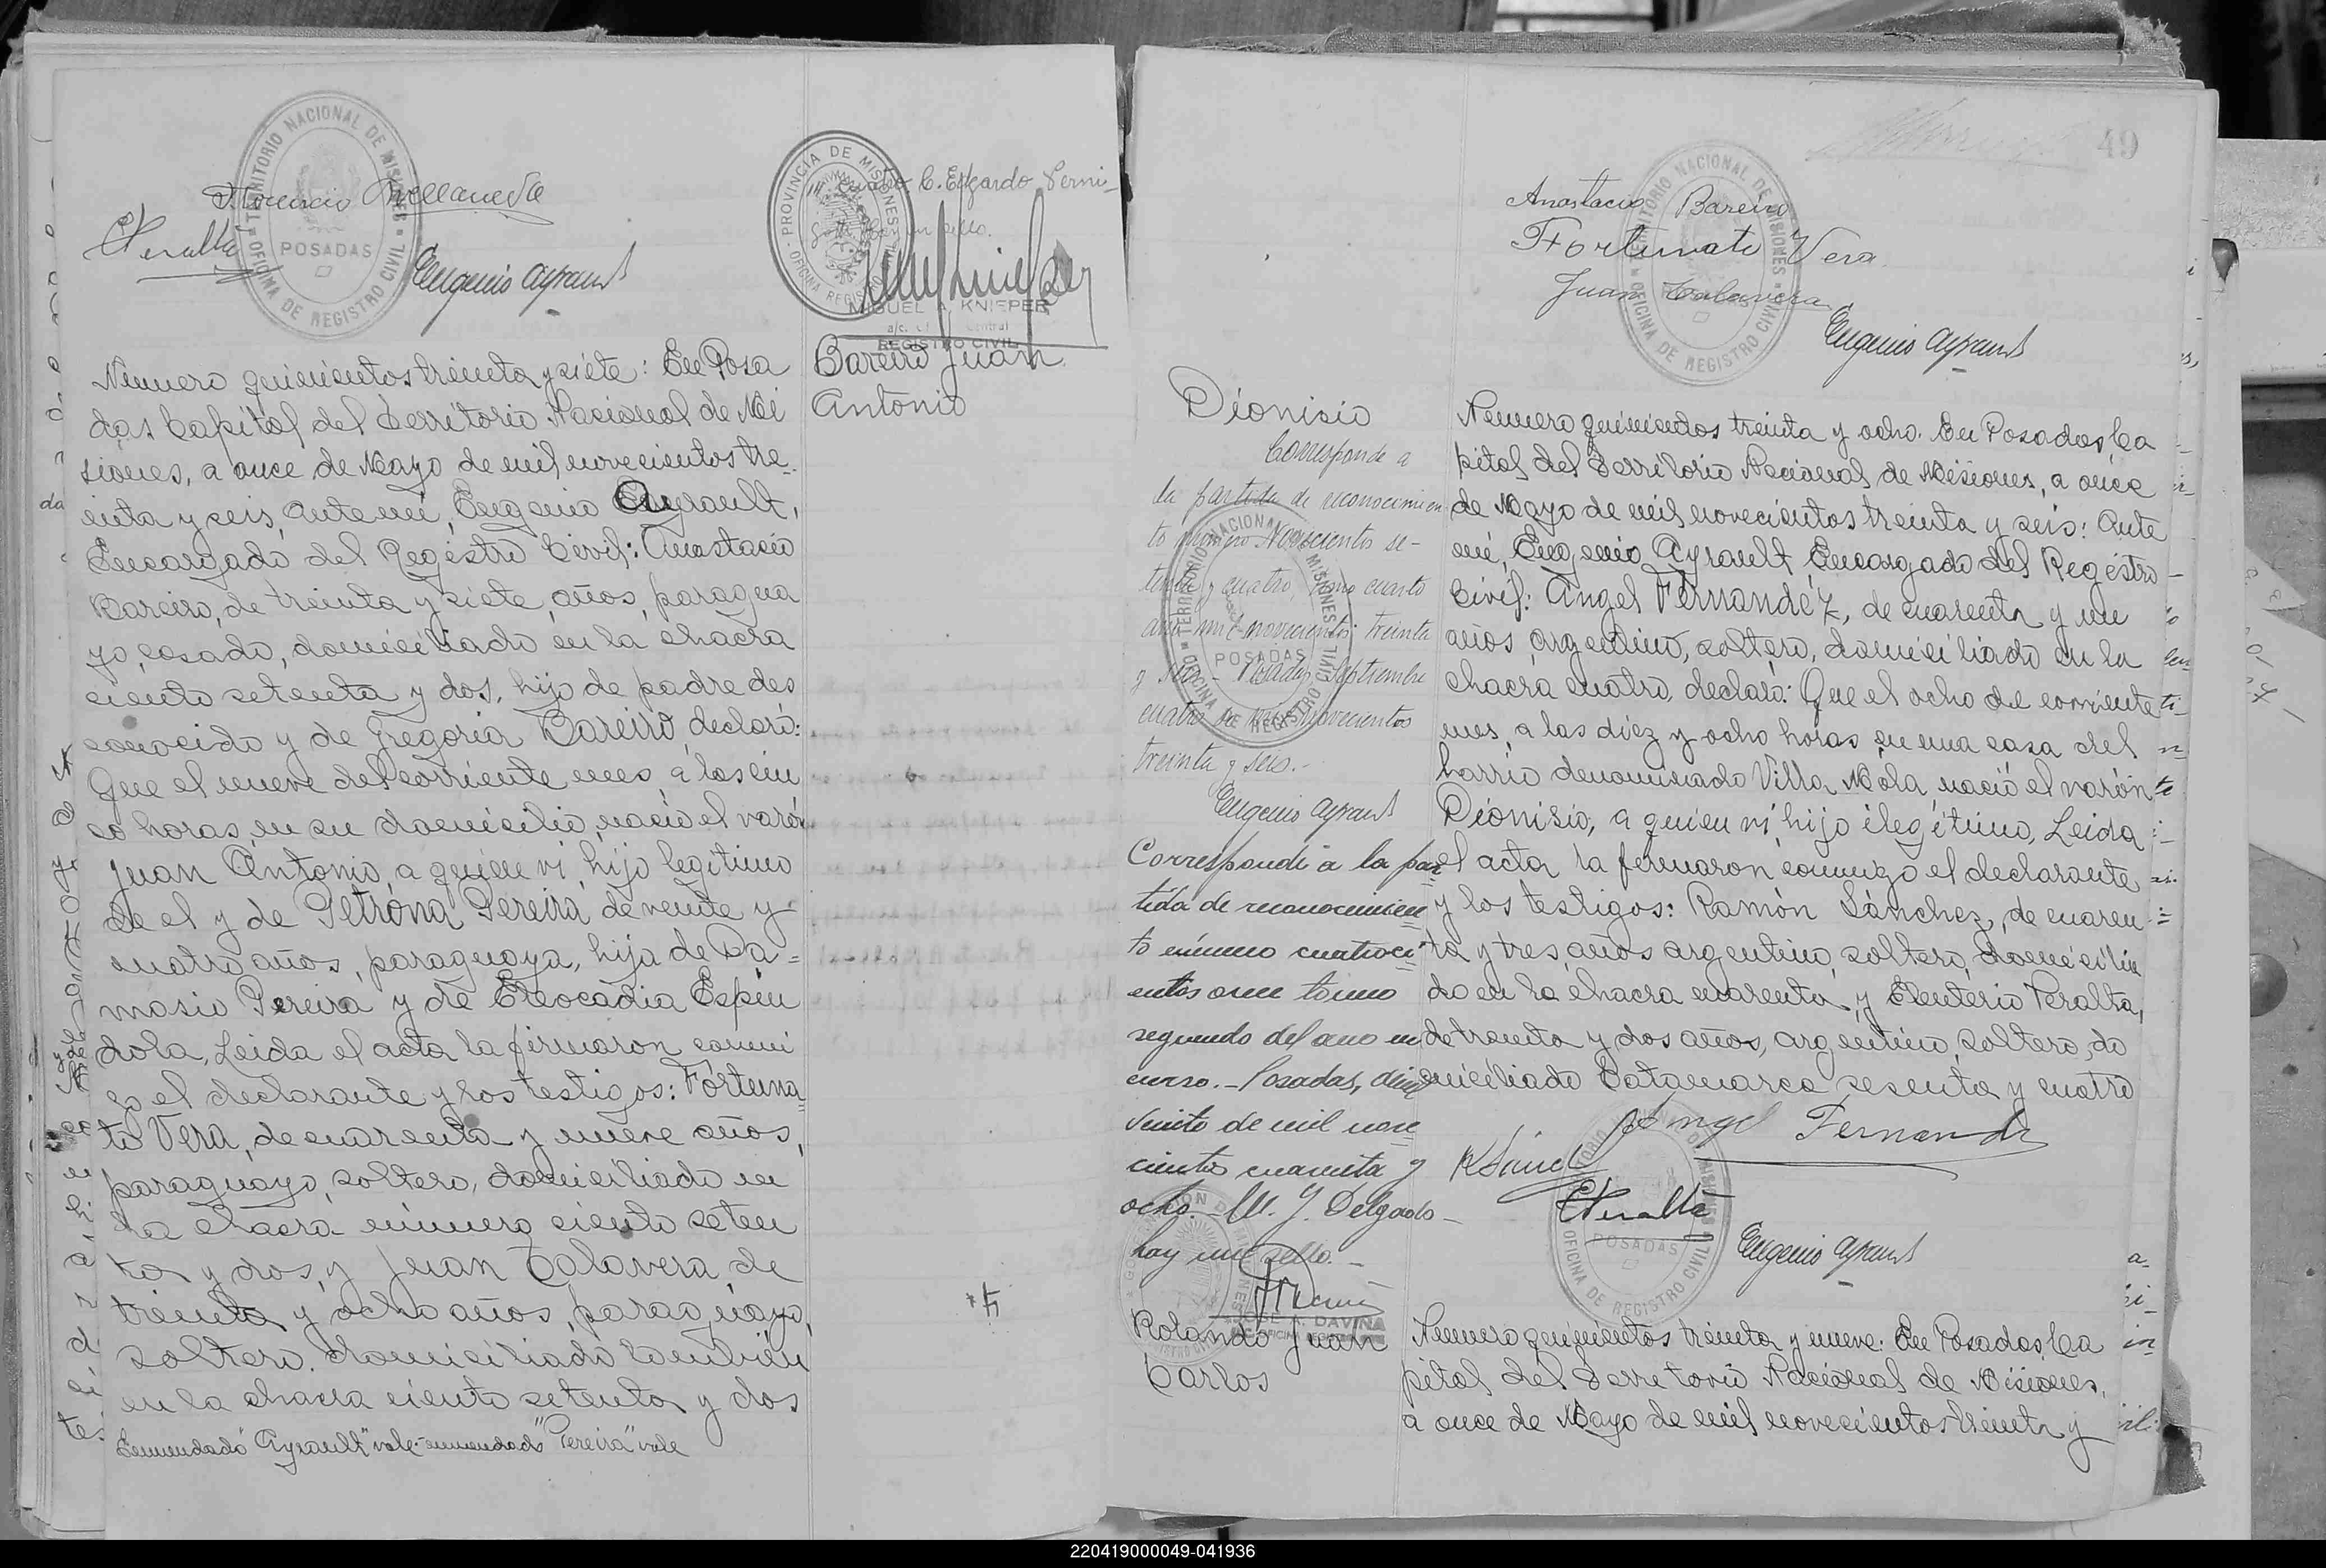 Florencio Avellaneda
EPeralta
Eugenio Ayrault
TERRITORIO NACIONAL DE MISIONES
POSADAS
OFICINA DE REGISTRO CIVIL
Numero quinientos treinta y siete: En Posa
das Capital del Territorio Nacional de Mi
siones, a once de Mayo de mil novecientos tre
inta y seis, ante mi, Eugenio Ayrault,
Encargado del Registro Civil: Anastacio
Bareiro, de treinta y siete años, paragua
yo, casado, domiciliado en la chacra
ciento setenta y dos, hijo de padre des
conocido y de Gregoria Bareiro, declaró:
Que el nueve del corriente mes, a las cin
co horas en su domicilio, nació el varón
Juan Antonio, a quien vi, hijo legítimo
de el y de Petrona Pereira, de veinte y
cuatro años, paraguaya, hija de Da=
masio Pereira y de Leocadia Espín
dola, Leida el acta la firmaron conmi
go el declarante y los testigos: Fortuna=
to Vera, de cuarenta y nueve años,
paraguayo, soltero, domiciliado en
la chacra número ciento seten
ta y dos, y Juan Talavera, de
treinta y ocho años, paraguayo,
soltero, domiciliado también
en la chacra ciento setenta y dos
Enmendado "Ayrault" vale - enmendado "Pereira" vale
cuatro C. Edgardo Perni-
hay un sello.
PROVINCIA DE MISIONES
MIGUEL A. KNIEPER
REGISTRO CIVIL
Bareiro Juan
Antonio
49
Anastacio Bareiro
Fortunato Vera
Juan Talavera
Eugenio Ayrault
TERRITORIO NACIONAL DE MISIONES
OFICINA DE REGISTRO CIVIL
Dionisio
Corresponde a
la partida de reconocimien
to número Novecientos se-
tenta y cuatro, tomo cuarto
año mil novecientos treinta
y seis - Posadas, Septiembre
cuatro de mil novecientos
treinta y seis.-
Eugenio Ayrault
Corresponde a la par
tida de reconocimien
to número cuatroci
entos once tomo
segundo del año en
curso.- Posadas,
de mil nove
cientos cuarenta y
ocho. M. J. Delgado-
hay un sello.-
JOSE A. DAVIÑA
Rolando Juan
Carlos
Numero quinientos treinta y ocho. En Posadas, Ca
pital del Territorio Nacional de Misiones, a once
de Mayo de mil novecientos treinta y seis: Ante
mi, Eugenio Ayrault Encargado del Registro
Civil: Angel Fernández, de cuarenta y un
años, argentino, soltero, domiciliado en la
chacra cuatro, declaró: Que el ocho de corriente
mes, a las diez y ocho horas en una casa del
barrio denominado Villa Mola nació el varón
Dionisio, a quien vi hijo ilegítimo, Leida
el acta la firmaron conmigo el declarante
y los testigos: Ramón Sánchez, de cuaren
ta y tres años argentino, soltero, domicilia
do en la chacra cuarenta, y Eleuterio Peralta,
de treinta y dos años, argentino, soltero, do
miciliado Catamarca sesenta y cuatro
Angel Fernandez
RSánchez
EPeralta
Eugenio Ayrault
POSADAS
OFICINA DE REGISTRO CIVIL
Numero quinientos treinta y nueve: En Posadas, Ca
pital del Territorio Nacional de Misiones,
a once de Mayo de mil novecientos treinta y
220419000049-041936